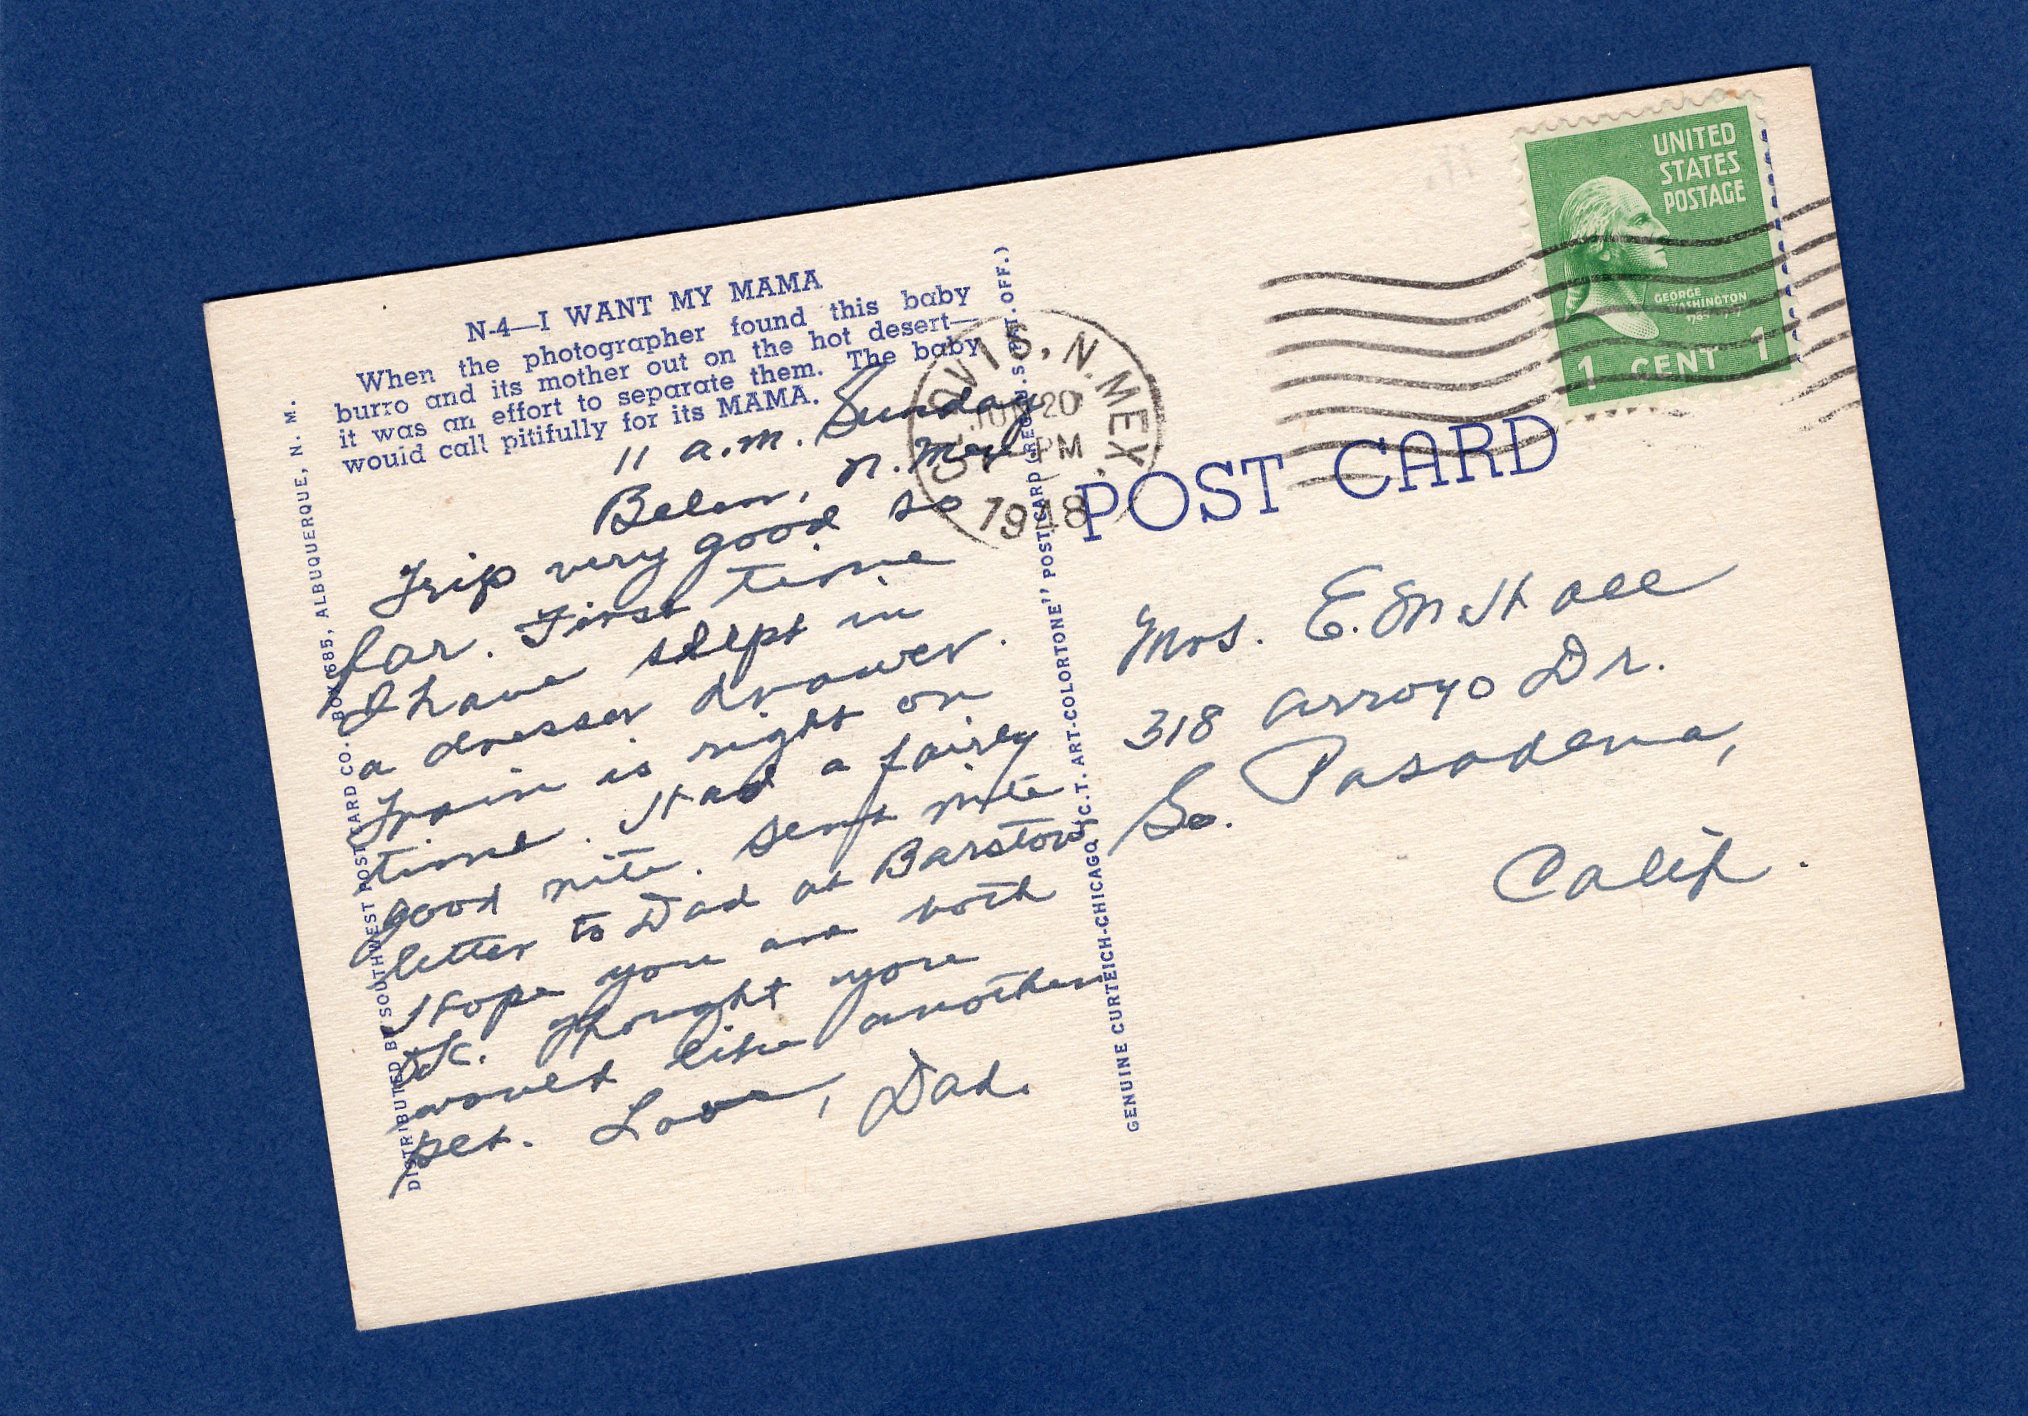 N-4—I WANT MY MAMA
When the photographer found this baby
burro and its mother out on the hot desert—
it was an effort to separate them. The baby
would call pitifully for its MAMA.
11 a.m. Sunday
Belen, N. Mex
Trip very good so
far. First time
I have slept in
a dresser drawer.
Train is right on
time. Had a fairly
good nite. Sent nite
letter to Dad at Barstow
Hope you are both
OK. Thought you
would like another
pet. Love, Dad.
DISTRIBUTED BY SOUTHWEST POST CARD CO. BOX 685, ALBUQUERQUE, N. M.
GENUINE CURTEICH-CHICAGO "C.T. ART-COLORTONE" POST CARD (REG. U.S. PAT. OFF.)
CLOVIS, N. MEX.
JUN 20
PM
1948
UNITED
STATES
POSTAGE
GEORGE
WASHINGTON
1 CENT 1
POST CARD
Mrs. E. M. Hall
318 Arroyo Dr.
So. Pasadena,
Calif.